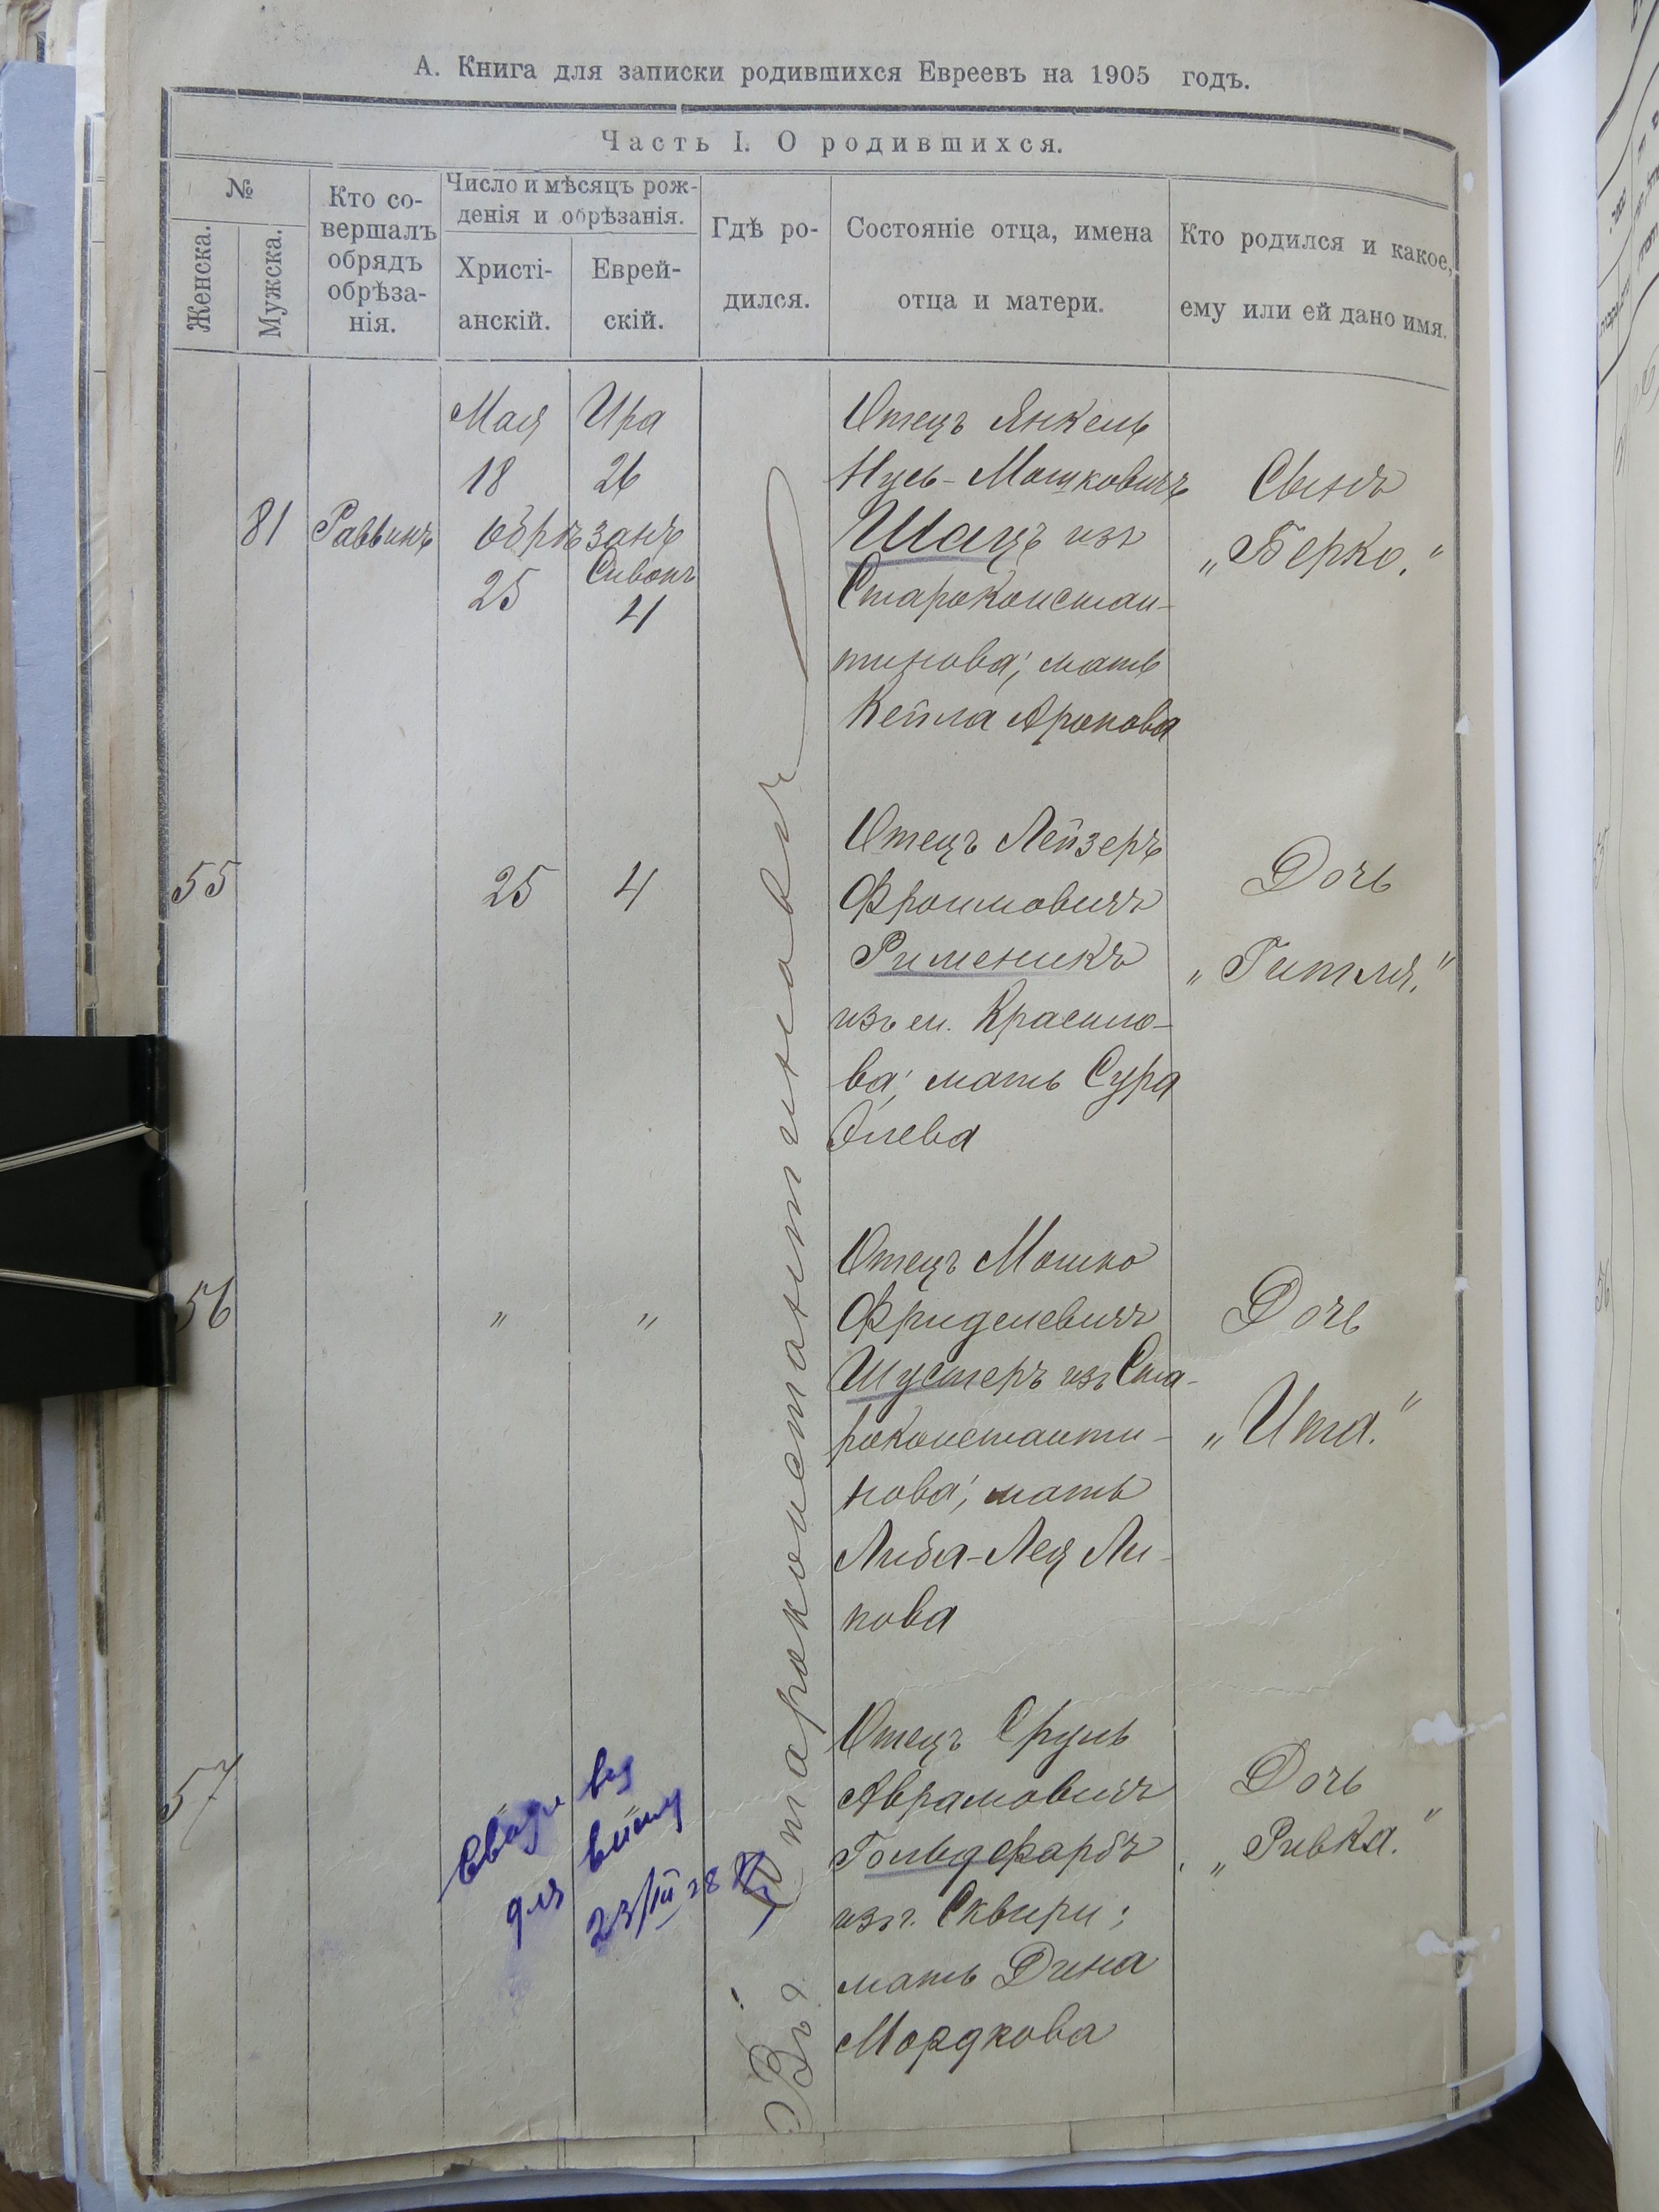 А. Книга для записки родившихся Евреевъ на 1905 годъ.
Часть I. О родившихся.
№
Женска.
Мужска.
Кто со-
вершалъ
обрядъ
обрѣза-
нія.
Число и мѣсяцъ рож-
денія и обрѣзанія.
Христі-
анскій.
Еврей-
скій.
Гдѣ ро-
дился.
Состояніе отца, имена
отца и матери.
Кто родился и какое,
ему или ей дано имя.
81
Раввинъ
Мая Ира
18 26
Обрѣзанъ
Сивонъ
25 4
Отецъ Янкель
Нусь-Мошковичъ
Шацъ изъ
Староконстан-
тинова; мать
Кейла Аронова
Сынъ
„Берко."
Въ г. Староконстантиновѣ
55
25 4
Отецъ Лейзеръ
Фроимовичъ
Рименикъ
изъ м. Красило-
ва; мать Сура
Элева
Дочь
„Гитля."
56
" "
Отецъ Мошко
Фриделевичъ
Шустеръ изъ Ста-
роконстанти-
нова; мать
Либа-Лея Ли-
пова
Дочь
„Ита."
57
" "
для
23/III 28
Отецъ Сруль
Аврамовичъ
Гольдфарбъ
изъ г. Сквири;
мать Дина
Мордкова
Дочь
„Ривка."